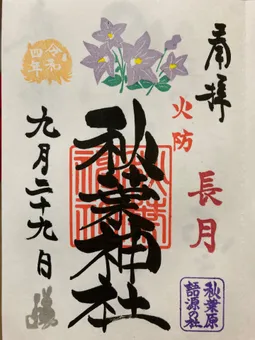 奉拝
火防
長月
秋葉神社
秋葉原
語源の社
令和
四年
九月二十九日